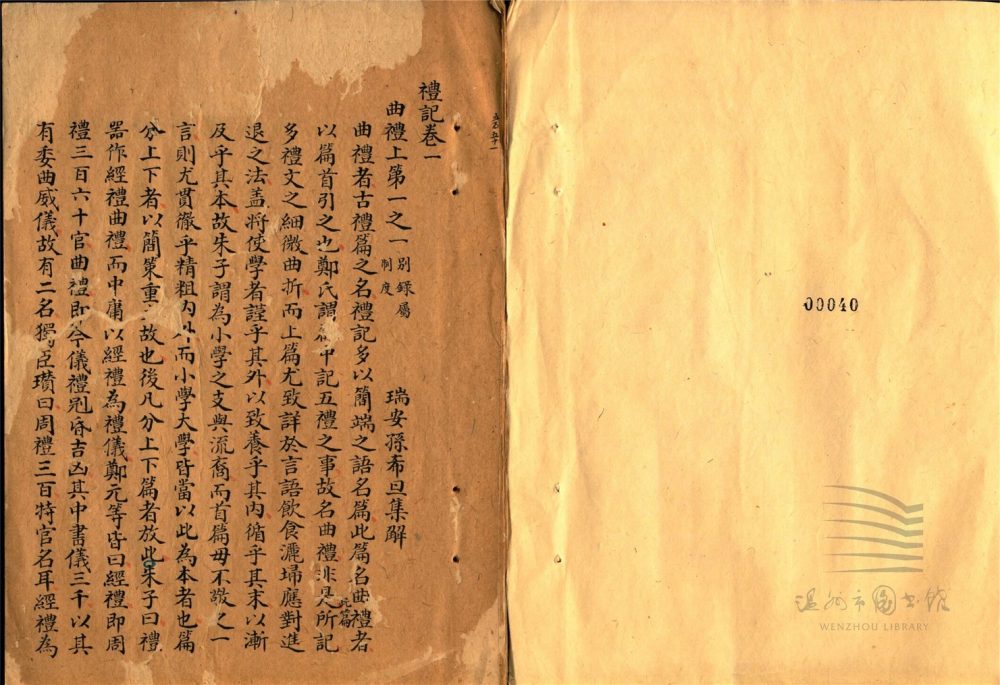 禮記卷一
曲禮上第一之一 別錄屬制度 瑞安孫希旦集解
曲禮者古禮篇之名禮記多以簡端之語名篇此篇名曲禮者
以篇首引之也鄭氏謂篇中記五禮之事故名曲禮非是此篇所記
多禮文之細微曲折而上篇尤致詳於言語飲食灑埽應對進
退之法蓋將使學者謹乎其外以致養乎其內循乎其末以漸
及乎其本故朱子謂為小學之支與流裔而首篇毋不敬之一
言則尤貫徹乎精粗內外而小學大學皆當以此為本者也篇
分上下者以簡策重大故也後凡分上下篇者放此朱子曰禮
器作經禮曲禮而中庸以經禮為禮儀鄭元等皆曰經禮即周
禮三百六十官曲禮即今儀禮冠昏吉凶其中書儀三千以其
有委曲威儀故有二名獨臣瓚曰周禮三百特官名耳經禮為
00040
温州市图书馆
WENZHOU LIBRARY